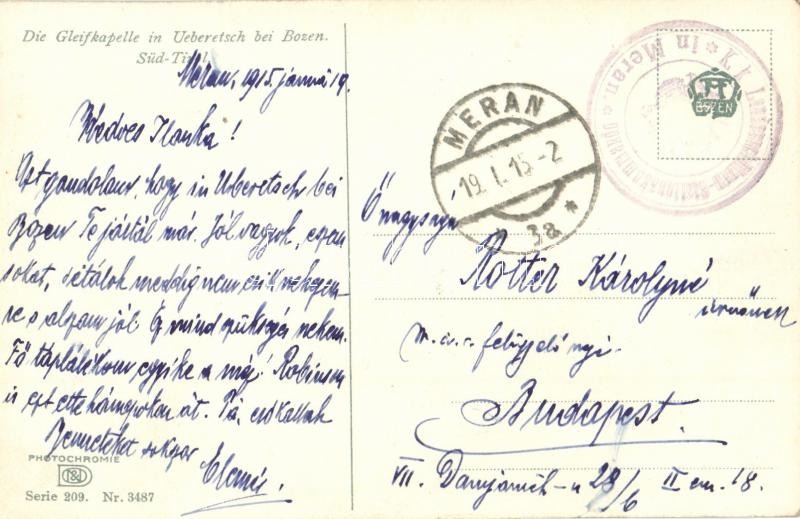 Die Gleifkapelle in Ueberetsch bei Bozen.
Süd-Tirol.
Meran, 1915. januá 19.
Kedves Ilonka!
Azt gondolom, hogy in Uberetsch bei
Bozen Te jártál már. Jól vagyok, eszem
sokat, sétálok meddig nem
re s alszom jól. Ez mind szükséges nekem.
Fő táplálékom egyike a méz! Robinson
is ezt ette hónapokon át. Pá, csókollak
Benneteket sokszor
Elemér.
PHOTOCHROMIE
Serie 209. Nr. 3487
MERAN
19. I. 15-2
3a
in Meran
BOZEN
Ő nagysága
Rotter Károlyné
úrnőnek
m. á. v. felügyelő neje
Budapest.
VII. Damjanich-u 28/6 II em. 18.